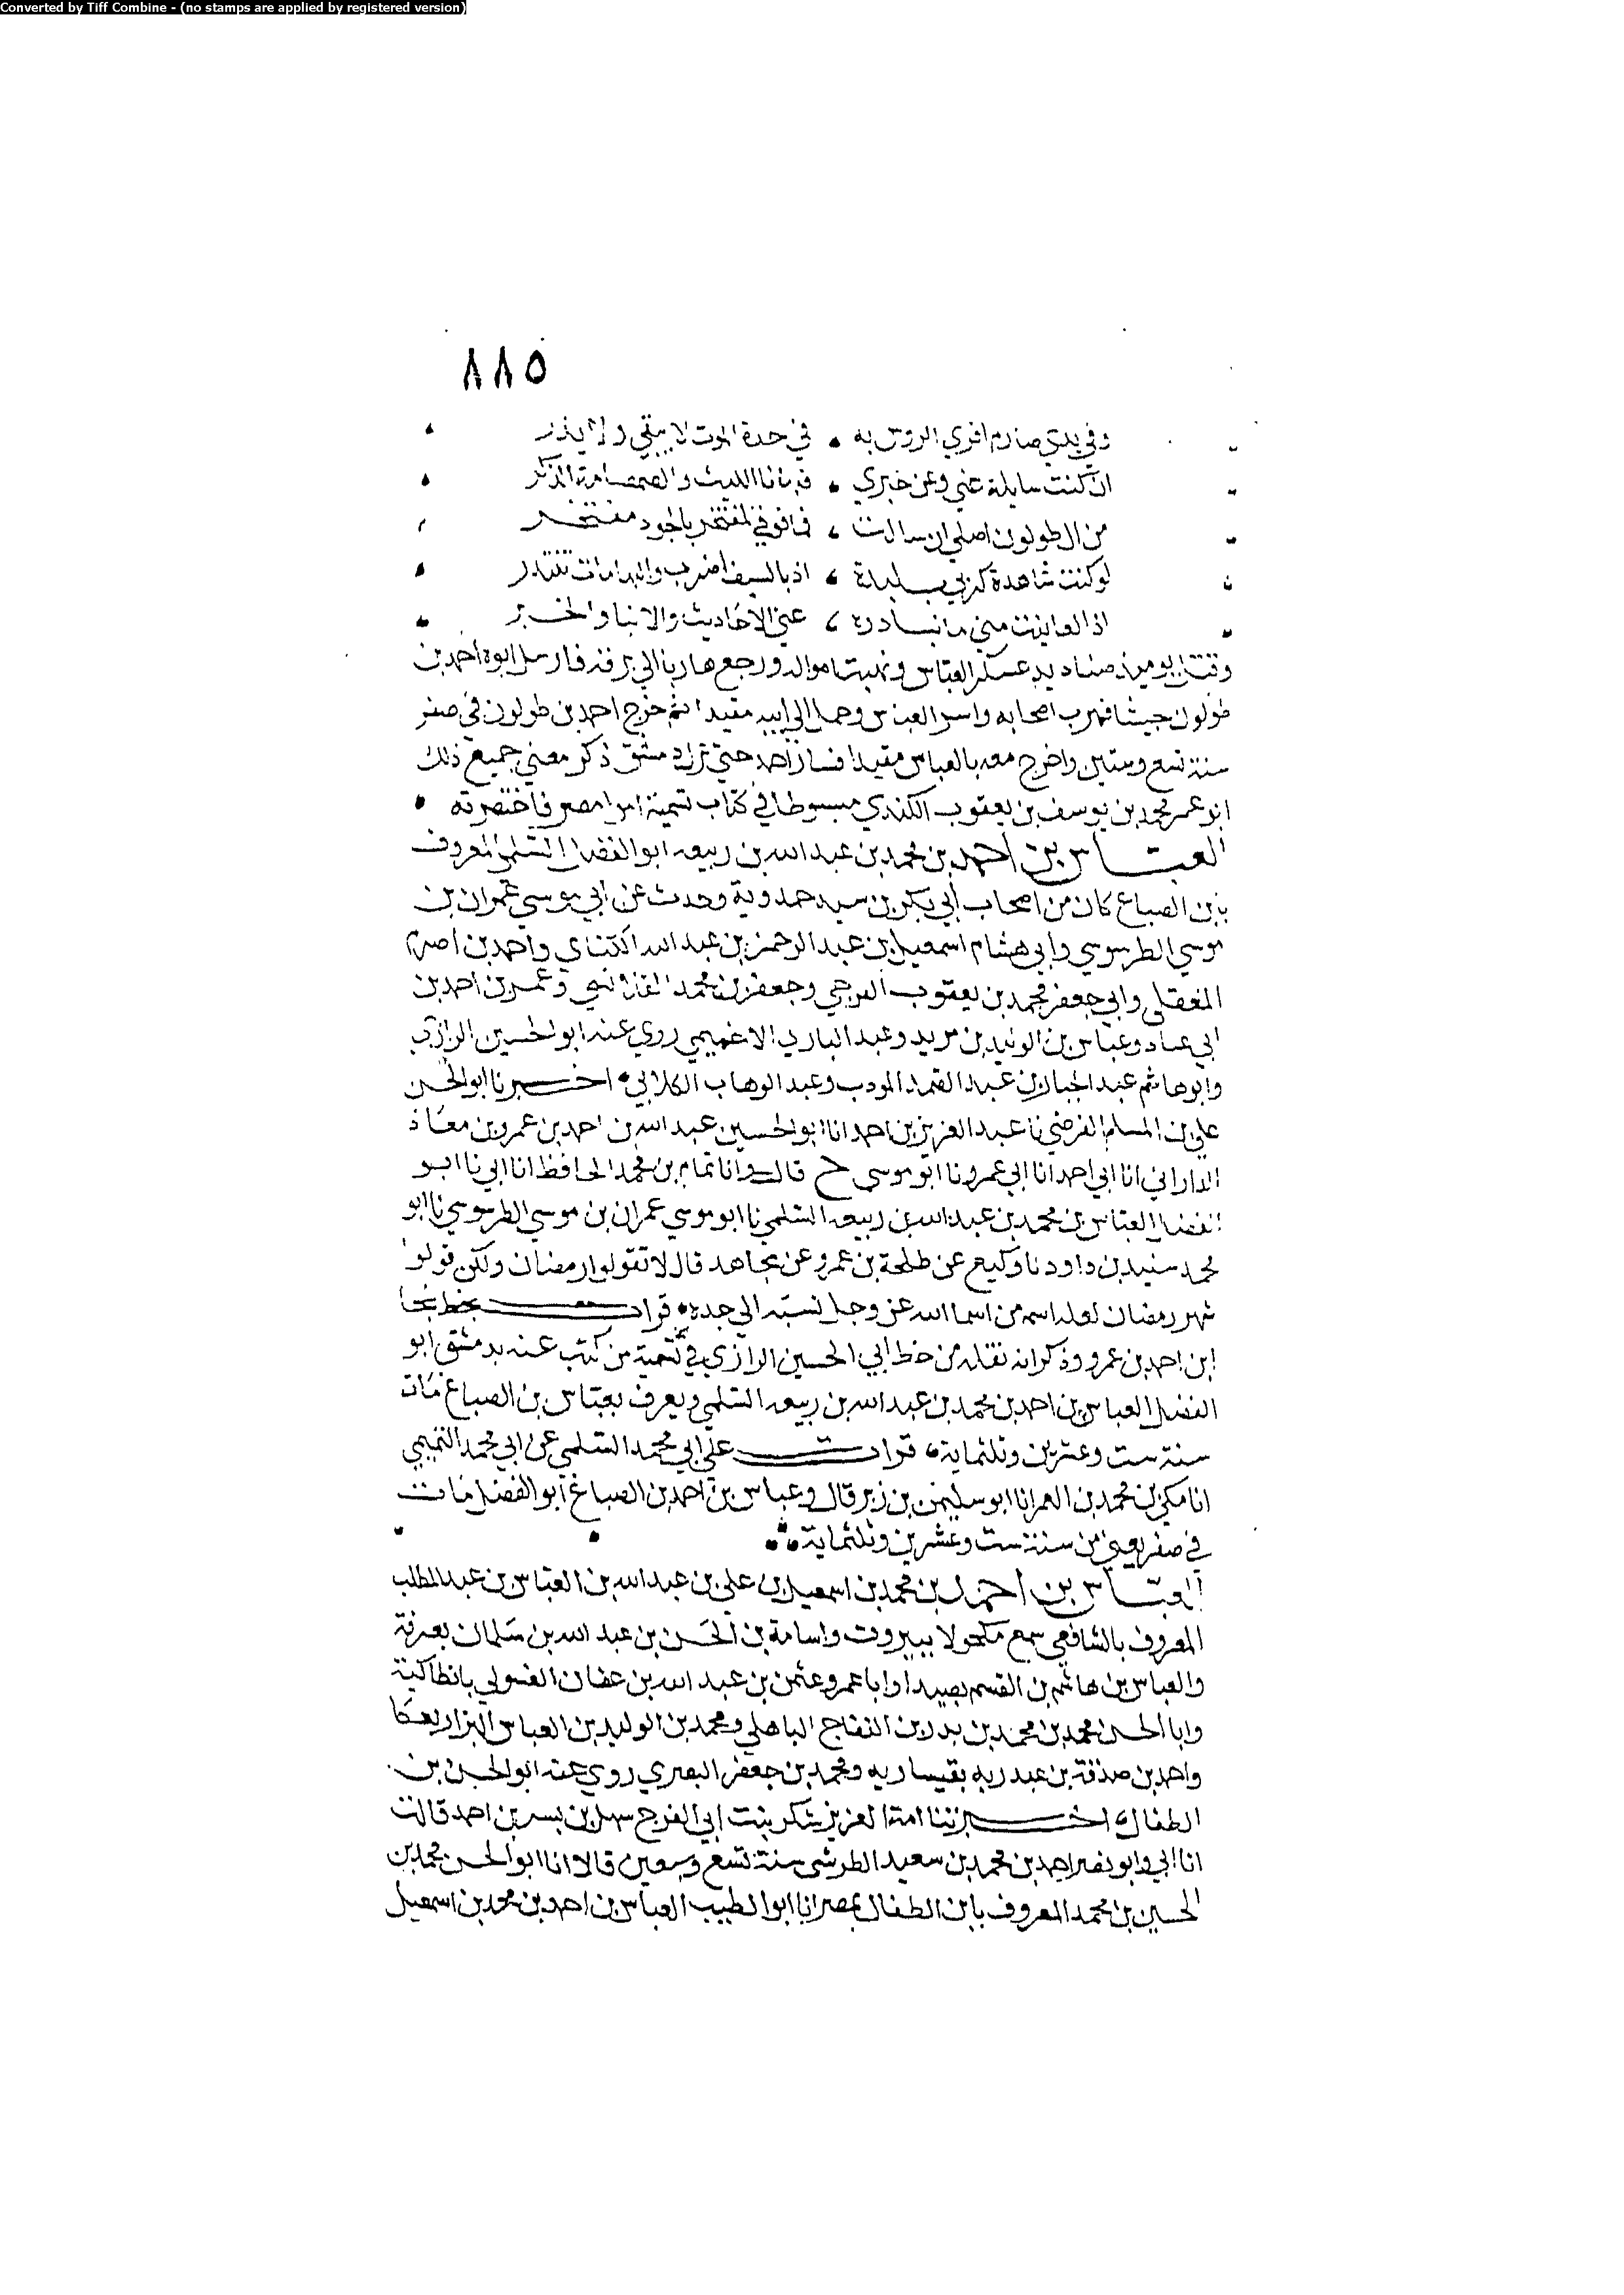 Converted by Tiff Combine - (no stamps are applied by registered version)
٨٨٥
وفي يدي صارم افري الروس به في حدة الموت لا يبقي ولا يذر
ان كنت سايلة عني وعن خبري فهانا الليث والصمصامة الذكر
من ال طولون اصلي ان سالت فما فوقي لمفتخر بالجود مفتخر
لو كنت شاهدة كري بلبدة اذ بالسيف اضرب والهامات تبتدر
اذا لعاينت مني ما تبادره عني الاحاديث والانبا والخبر
وقتل يوميذ صناديد عسكر العباس ونهبت امواله ورجع هاربا الي برقة فارسل ابوه احمد بن
طولون جيشا فهرب اصحابه واسر العباس وحمل الي ابيه مقيدا ثم خرج احمد بن طولون في صفر
سنة تسع وستين واخرج معه بالعباس مقيدا فسار احمد حتي نزل دمشق ذكر معني جميع ذلك
ابو عمر محمد بن يوسف بن يعقوب الكندي مبسوطا في كتاب تسمية امرا مصر فاختصرته
العباس بن احمد بن محمد بن عبد الله بن ربيعه ابو الفضل السلمي المعروف
بابن الصباغ كان من اصحاب ابي بكر بن سيد حمدوية وحدث عن ابي موسي عمران بن
موسي الطرسوسي وابي هشام اسمعيل بن عبد الرحمن بن عبد الله الكتاني واحمد بن اصرم
المغفلي وابي جعفر محمد بن يعقوب الفرجي وجعفر بن محمد القلانسي وعمر بن احمد بن
ابي عباد وعباس بن الوليد بن مزيد وعبد الباري الاخميمي روي عنه ابو الحسين الرازي
وابو هاشم عبد الجبار بن عبد الصمد المودب وعبد الوهاب الكلابي اخبرنا ابو الحسن
علي بن المسلم الفرضي نا عبد العزيز بن احمد انا ابو الحسين عبد الله بن احمد بن عمرو بن معاذ
الداراني انا ابي احمد انا ابي عمرو نا ابو موسي ح قال وانا تمام بن محمد الحافظ انا ابي نا ابو
الفضل العباس بن محمد بن عبد الله بن ربيعه السلمي نا ابو موسي عمران بن موسي الطرسوسي نا ابو
محمد سنيد بن داود نا وكيع عن طلحة بن عمرو عن مجاهد قال لا تقولوا رمضان ولكن قولوا
شهر رمضان لعله اسم من اسما الله عز وجل نسبه الي جده قرات بخط نجا
ابن احمد بن عمرو وذكر انه نقله من خط ابي الحسين الرازي في تسمية من كتب عنه بدمشق ابو
الفضل العباس بن احمد بن محمد بن عبد الله بن ربيعه السلمي ويعرف بعباس بن الصباغ مات
سنة ست وعشرين وثلثماية قرات علي ابي محمد السلمي عن ابي محمد التميمي
انا مكي بن محمد بن الغمر انا ابو سليمن بن زبر قال وعباس بن احمد بن الصباغ ابو الفضل مات
في صفر يعني من سنة ست وعشرين وثلثماية
العباس بن احمد بن محمد بن اسمعيل بن علي بن عبد الله بن العباس بن عبد المطلب
المعروف بالشافعي سمع مكحولا ببيروت واسامة بن الحسن بن عبد الله بن سلمان بعرفة
والعباس بن هاشم بن القسم بصيدا وابا عمرو عثمن بن عبد الله بن عفان الغسولي بانطاكية
وابا الحسن محمد بن محمد بن بدر بن النفاح الباهلي ومحمد بن الوليد بن العباس البزار بعكا
واحمد بن صدقة بن عبد ربه بقيساريه ومحمد بن جعفر البصري روي عنه ابو الحسن بن
الطفال اخبرتنا امة العزيز شكر بنت ابي الفرج سهل بن بسر بن احمد قالت
انا ابي وابو نصر احمد بن محمد بن سعيد الطرشي سنة تسع وسبعين قالا انا ابو الحسن محمد بن
الحسين بن محمد المعروف بابن الطفال بمصر انا ابو الطيب العباس بن احمد بن محمد بن اسمعيل